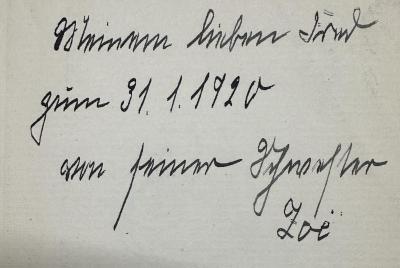 Meinem lieben Fred
zum 31. 1. 1920
von seiner Schwester
Zoë